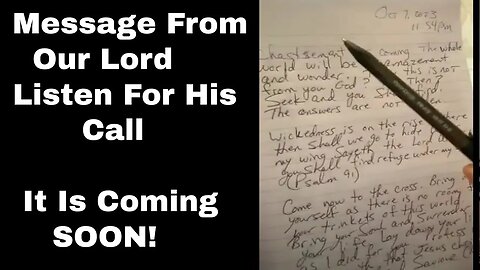 Message From
Our Lord
Listen For His
Call
It Is Coming
SOON!
Oct 7, 2023
11:54pm
Chastisement coming The whole
world will be amazement
and wonder. this is not
from you God? Then?
Seek and you shall
The answers are not
Wickedness is on the rise where
then shall we go to hide
my wing Sayeth the Lord
shall find refuge under my
(Psalm 91)
Come now to the cross. Bring
yourself as there is no room
your trinkets of this world
Bring your Soul and Surrender
life lay down your
as I did for you
that Jesus
Saviour